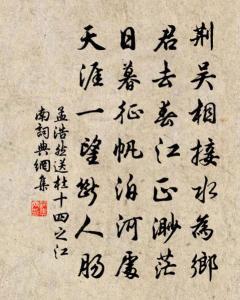 荆吴相接水為鄉
君去春江正渺茫
日暮征帆泊何處
天涯一望斷人腸
孟浩然送杜十四之江
南詞典網集